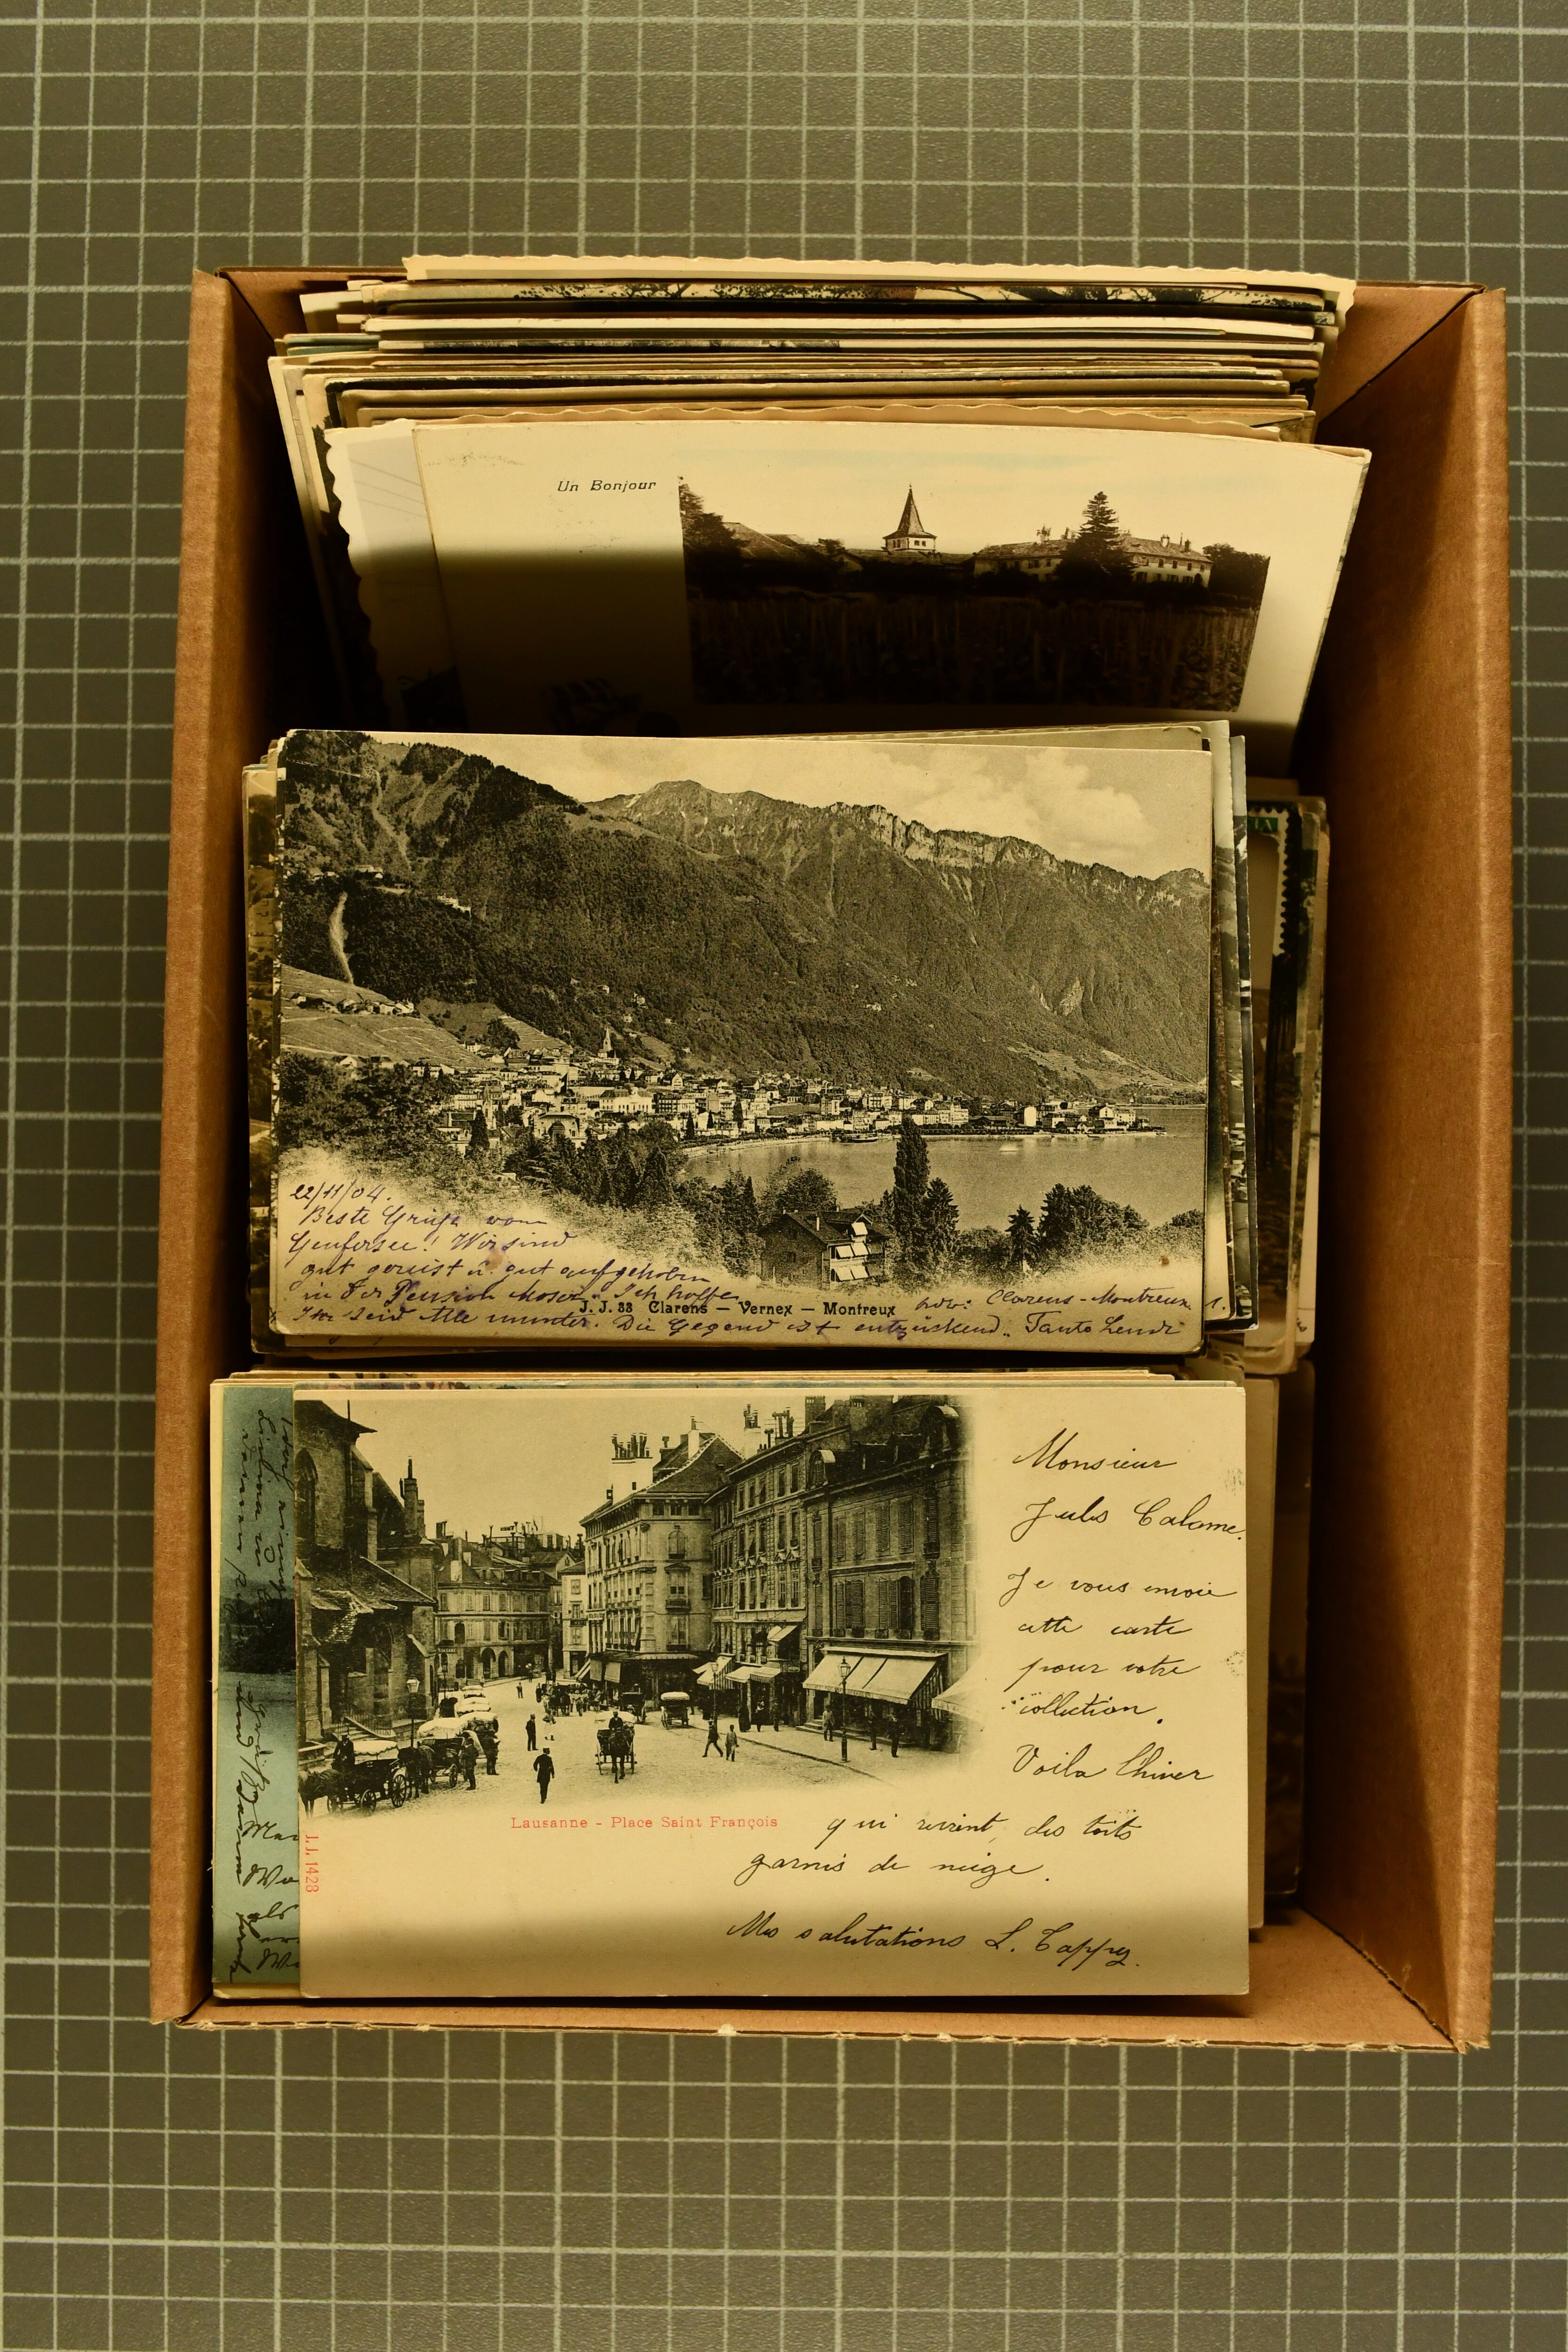 Un Bonjour
22/11/04.
Beste Grüße vom
Genfersee! Wir sind
gut gereist u. gut aufgehoben
in der Pension Moser. Ich hoffe
J. J. 33 Clarens — Vernex — Montreux
Clarens - Montreux
Ihr seid Alle munter. Die Gegend ist entzückend.
Monsieur
Jules Calame.
Je vous envoie
cette carte
pour votre
collection.
Voila l'hiver
Lausanne - Place Saint François
qui revient, des toits
garnis de neige.
J.J. 1428
Mes salutations L. Tappy.